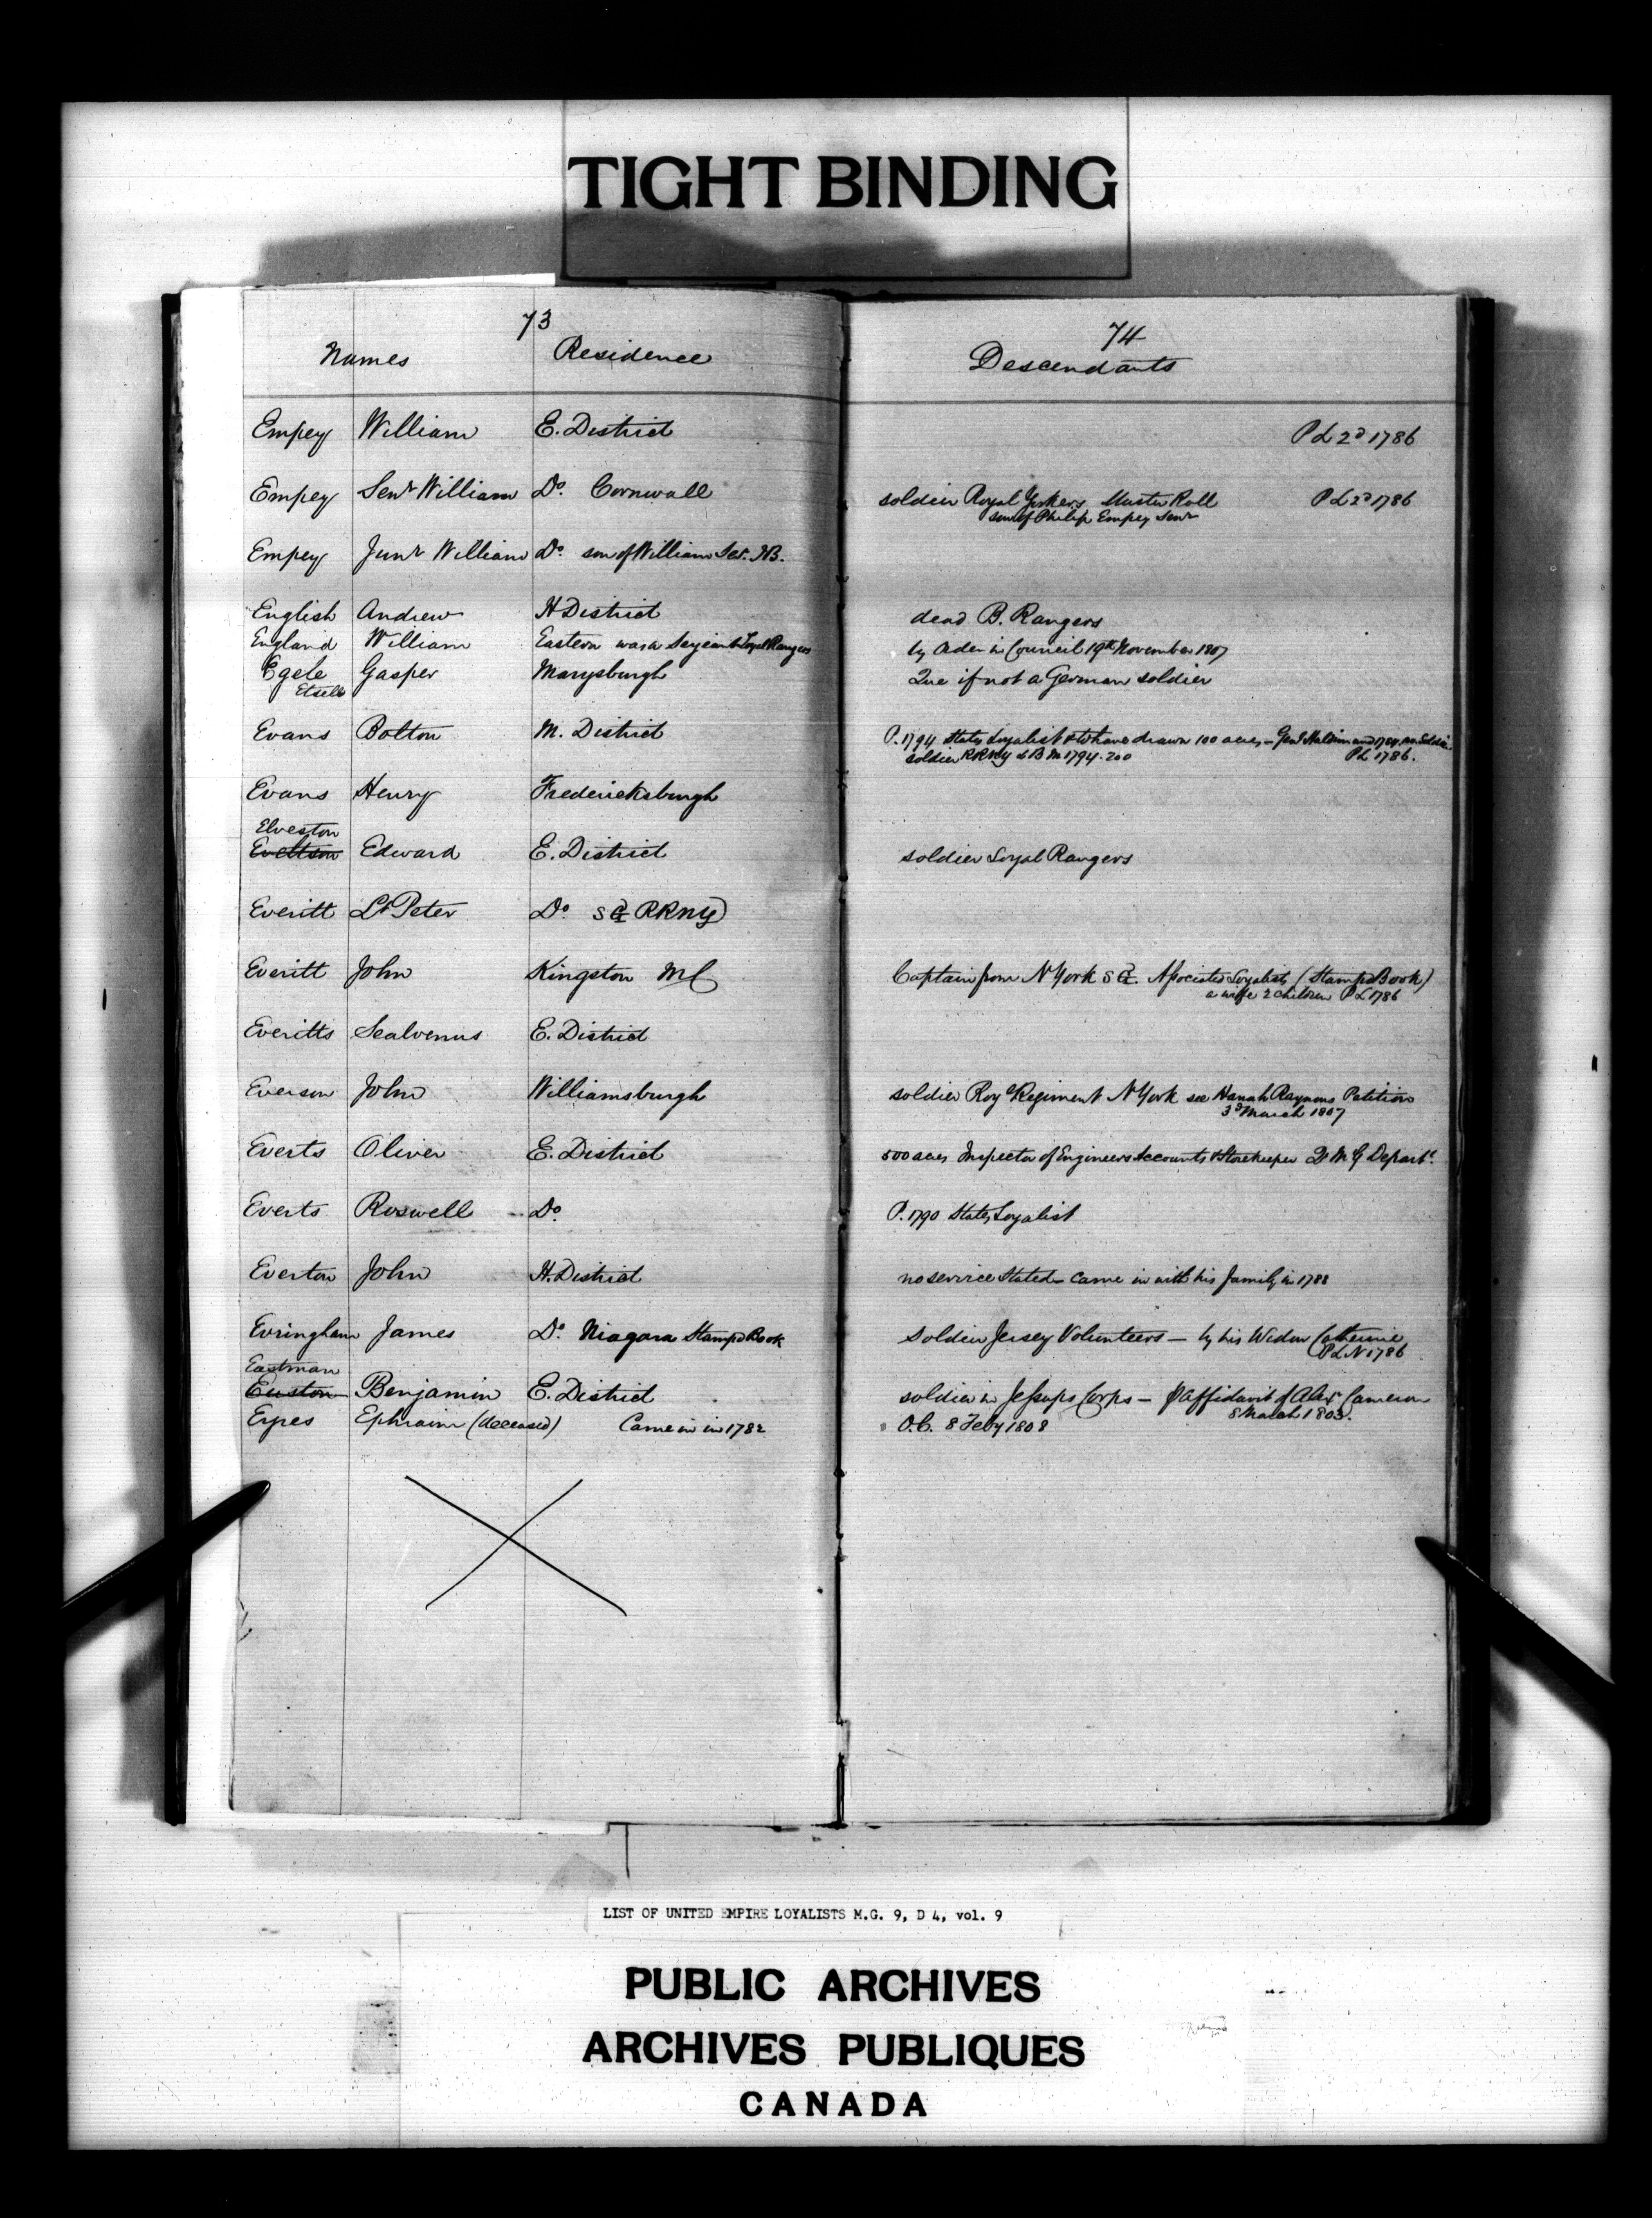 TIGHT BINDING
73
Names Residence
Empey William E. District
Empey Senr William Do. Cornwall
Empey Junr William Do. son of William Ser. NB.
English Andrew H District
England William Eastern was a Serjeant Loyal Rangers
Egele Gasper Marysburgh
Etsell
Evans Bolton M. District
Evans Henry Fredericksburgh
Elveston
Eveltson Edward E. District
Everitt Lt Peter Do. S G RRNY
Everitt John Kingston MC
Everitts Sealvenus E. District
Everson John Williamsburgh
Everts Oliver E. District
Everts Roswell Do.
Everton John H. District
Evringham James Do. Niagara Stamped Book
Eastman
Euston Benjamin E. District
Eyres Ephraim (deceased) Came in in 1782
74
Descendants
P L 2d 1786
soldier Royal Yorkers Muster Roll P L 2d 1786
son of Philip Empey Senr
dead B. Rangers
by Order in Council 19th November 1807
Que if not a German soldier
P. 1794 States Loyalist & to have drawn 100 acres – Genl Haldimand 1784 as Soldier.
soldier RRNY L B M 1794. 200 PL 1786.
soldier Loyal Rangers
Captain from N York S G. Associated Loyalists (Stamped Book)
a wife 2 children P L 1786
soldier Roy l Regiment N York see Hanah Raymons Petition
3d March 1807
500 acres Inspector of Engineers Accounts & Storekeeper Q M G Depart t.
P. 1790 States Loyalist
no service Stated – came in with his family in 1788
Soldier Jersey Volunteers – by his Widow Catherine
P L N 1786
soldier in Jessups Corps – P affidavit of Alexr Cameron
8 March 1803.
O.C. 8 Feby 1808
LIST OF UNITED EMPIRE LOYALISTS M.G. 9, D 4, vol. 9
PUBLIC ARCHIVES
ARCHIVES PUBLIQUES
CANADA